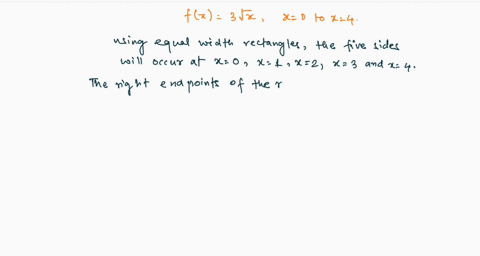 f(x) = 3√x, x=0 to x=4.
using equal width rectangles, the five sides
will occur at x=0, x=1, x=2, x=3 and x=4.
The right endpoints of the r